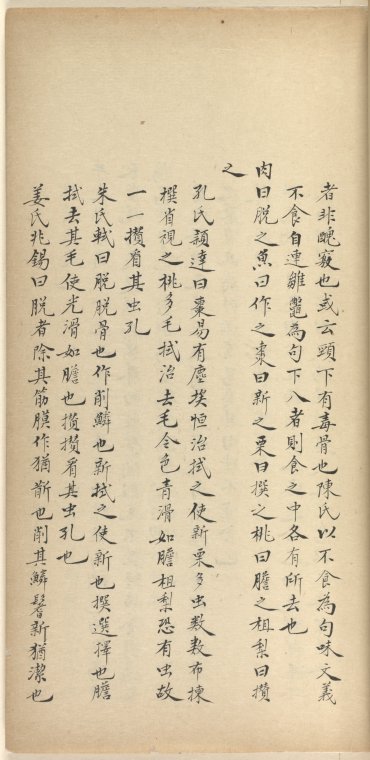 者非醜竅也或云頭下有毒骨也陳氏以不食為句味文義
不食自連雛鼈為句下八者則食之中各有所去也
肉曰脫之魚曰作之棗曰新之栗曰撰之桃曰膽之柤梨曰攢
之
孔氏頴達曰棗易有塵埃恒治拭之使新栗多虫數數布揀
撰省視之桃多毛拭治去毛令色青滑如膽柤梨恐有虫故
一一攢看其虫孔
朱氏軾曰脫脫骨也作削鱗也新拭之使新也撰選擇也膽
拭去其毛使光滑如膽也攢攢看其虫孔也
姜氏兆錫曰脫者除其筋膜作猶斮也削其鱗鬐新猶潔也